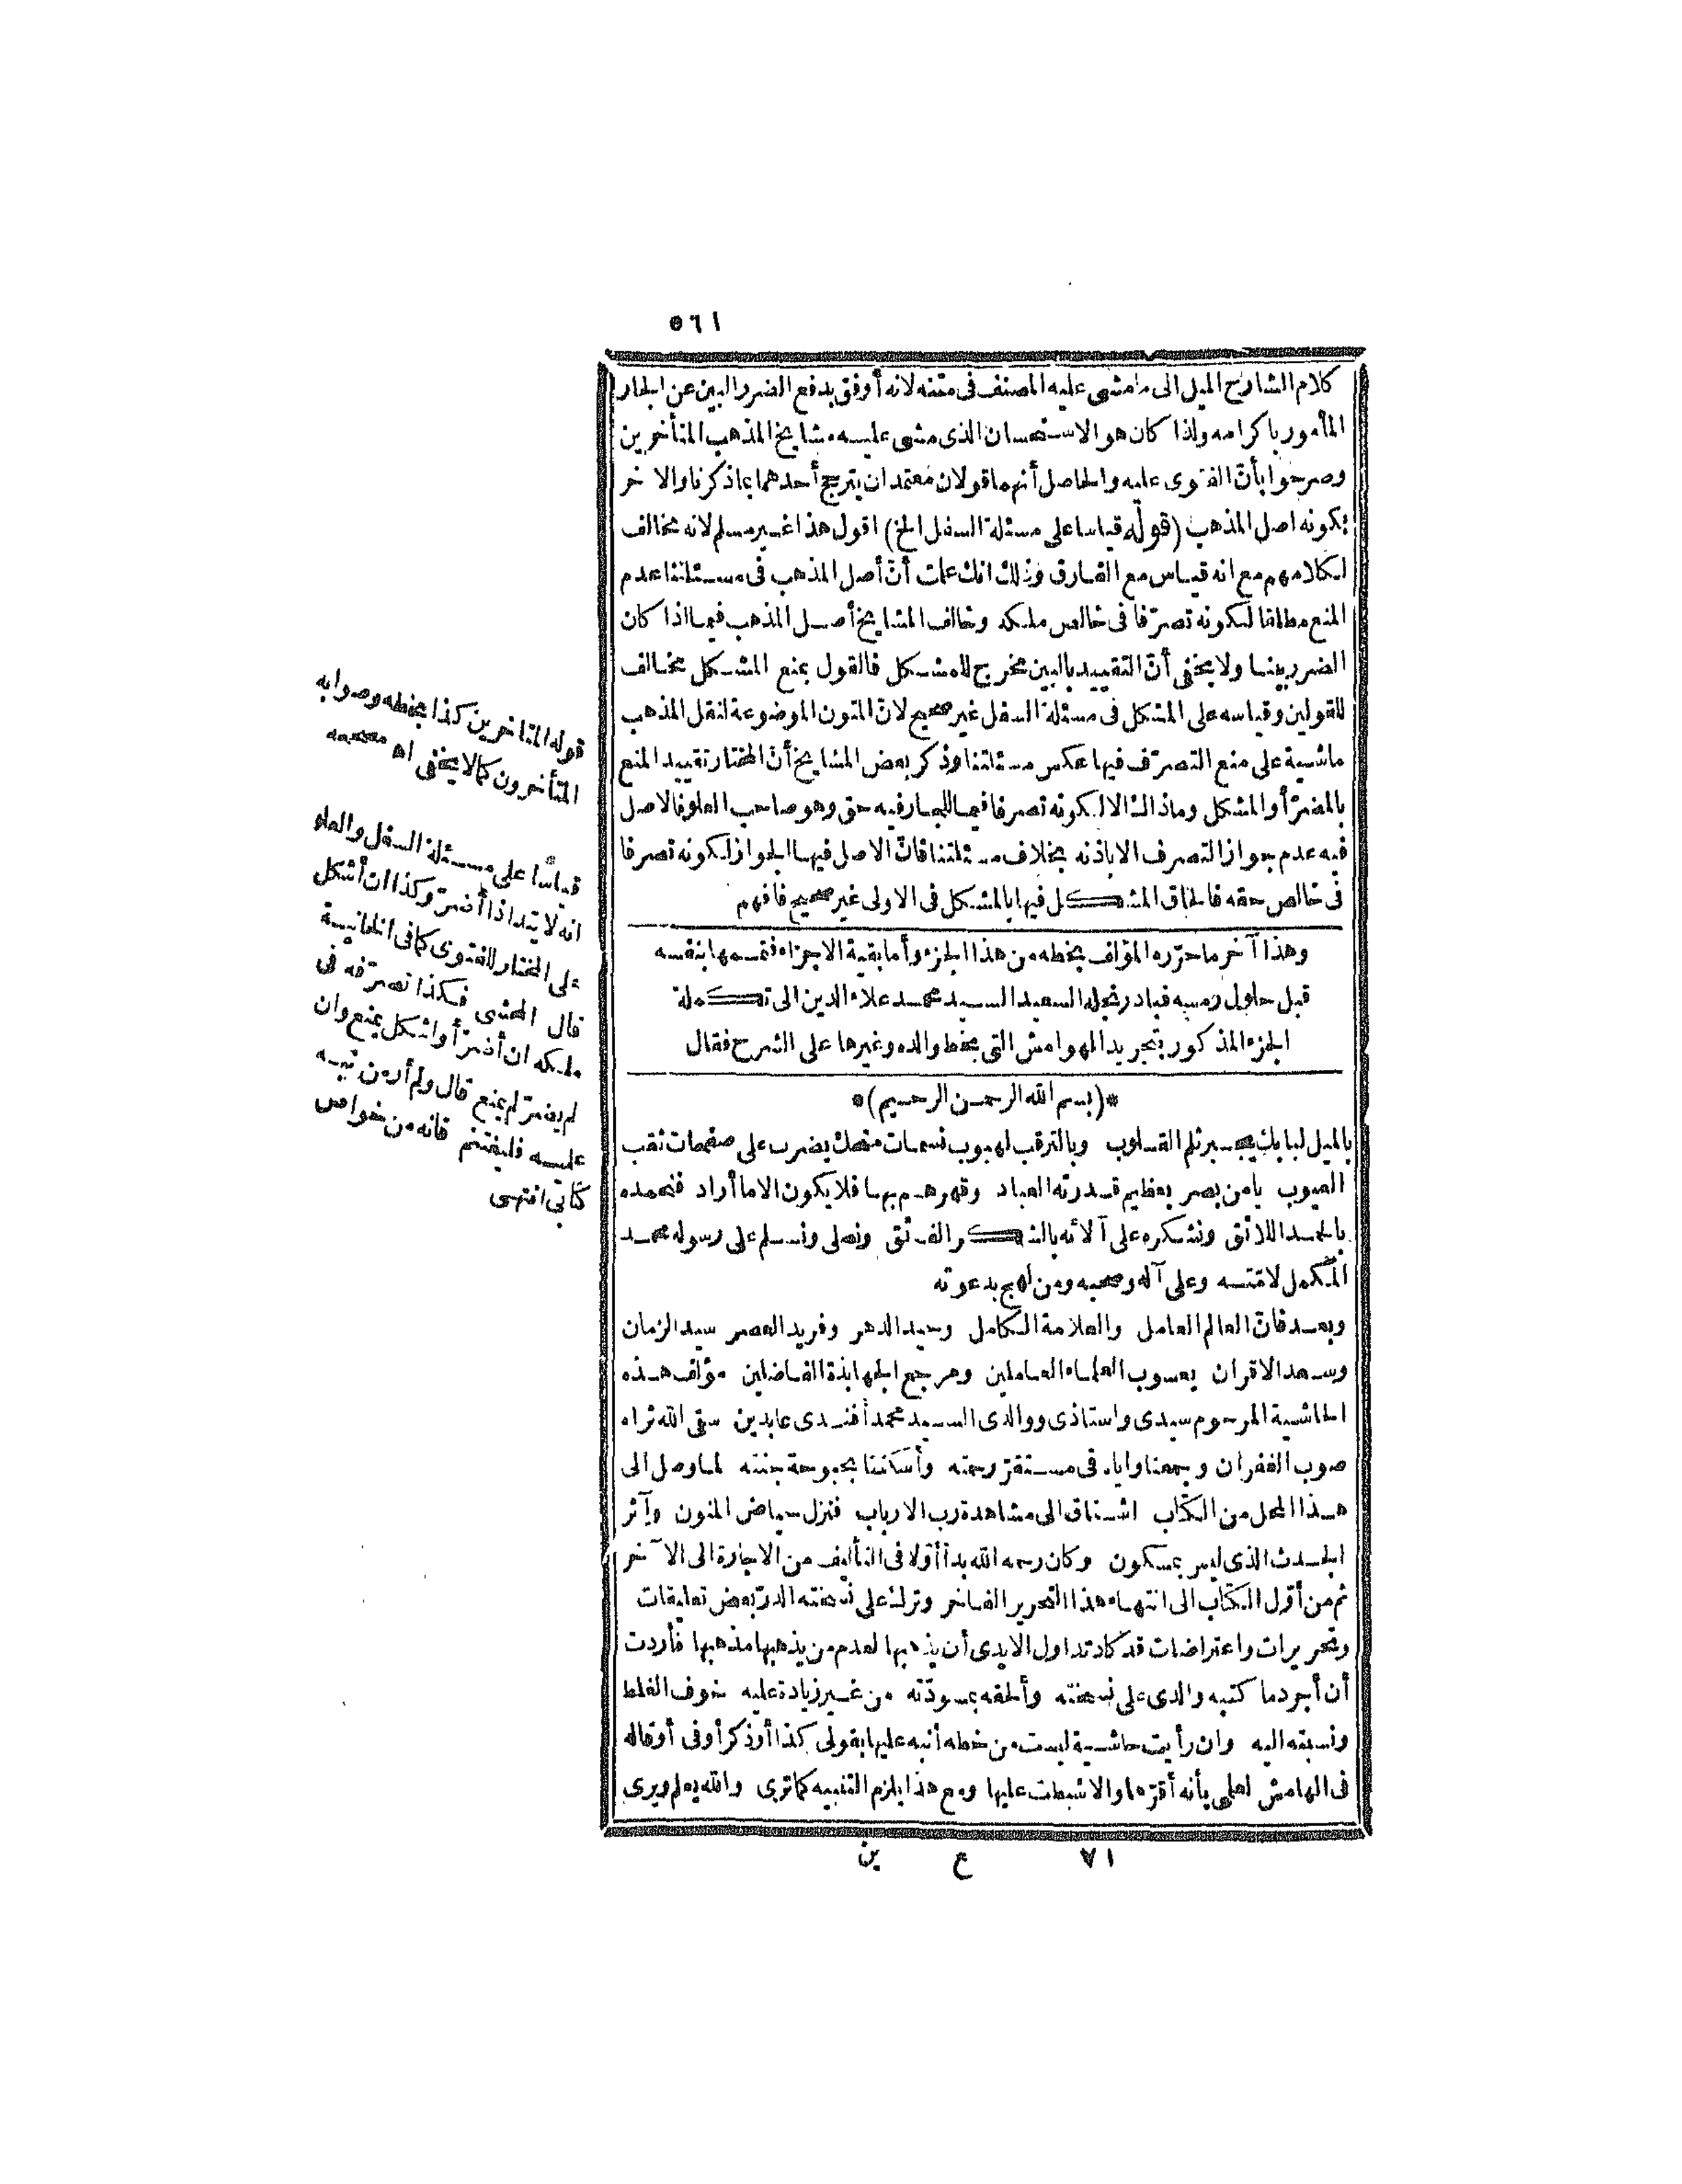 ٥٦١
كلام الشارح الميل الى ما مشى عليه المصنف فى متنه لانه أوفق بدفع الضرر البين عن الجار
المأمور باكرامه ولذا كان هو الاستحسان الذى مشى عليه مشايخ المذهب المتأخرين
وصرحوا بأنّ الفتوى عليه والحاصل أنهما قولان معتمدان يترجح أحدهما بما ذكرنا والاخر
بكونه اصل المذهب (قوله قياسا على مسئلة السفل الخ) اقول هذا غير مسلم لانه مخالف
لكلامهم مع انه قياس مع الفارق وذلك انك علمت أنّ أصل المذهب فى مسئلتنا عدم
المنع مطلقا لكونه تصرّفا فى خالص ملكه وخالف المشايخ أصل المذهب فيما اذا كان
الضرر بينا ولا يخفى أنّ التقييد بالبين مخرج للمشكل فالقول بمنع المشكل مخالف
للقولين وقياسه على المشكل فى مسئلة السفل غير صحيح لانّ المتون الموضوعة لنقل المذهب
ماشية على منع التصرّف فيها عكس مسئلتنا وذكر بعض المشايخ أنّ المختار تقييد المنع
بالمضرّ أو المشكل وما ذاك الا لكونه تصرفا فيما للجار فيه حق وهو صاحب العلو فالاصل
فيه عدم جواز التصرف الا باذنه بخلاف مسئلتنا فانّ الاصل فيها الجواز لكونه تصرفا
فى خالص حقه فالحاق المشكل فيها بالمشكل فى الاولى غير صحيح فافهم
وهذا آخر ما حرّره المؤلف بخطه من هذا الجزء وأما بقية الاجزاء فتممها بنفسه
قبل حلول رمسه فبادر نجله السعيد السيد محمد علاء الدين الى تكملة
الجزء المذكور بتجريد الهوامش التى بخط والده وغيرها على الشرح فقال
*(بسم الله الرحمن الرحيم)*
بالميل لبابك يجبر ثلم القلوب وبالترقب لهبوب نسمات منحك يضرب على صفحات نقب
العيوب يا من بصر بعظيم قدرته العباد وقهرهم بها فلا يكون الا ما أراد فنحمده
بالحمد اللائق ونشكره على آلائه بالشكر الفائق ونصلى ونسلم على رسوله محمد
المكمل لامّته وعلى آله وصحبه ومن لهج بدعوته
وبعد فانّ العالم العامل والعلامة الكامل وحيد الدهر وفريد العصر سيد الزمان
وسعد الاقران يعسوب العلماء العاملين ومرجع الجهابذة الفاضلين مؤلف هذه
الحاشية المرحوم سيدى واستاذى ووالدى السيد محمد أفندى عابدين سقى الله ثراه
صوب الغفران وجمعنا واياه فى مستقرّ رحمته وأسكننا بحبوحة جنته لما وصل الى
هذا المحل من الكتاب اشتاق الى مشاهدة رب الارباب فنزل حياض المنون وآثر
الجدث الذى ليس بمسكون وكان رحمه الله بدأ أوّلا فى التأليف من الاجارة الى الآخر
ثم من أوّل الكتاب الى انتهاء هذا التحرير الفاخر وترك على نسخته الدرّ بعض تعليقات
وتحريرات واعتراضات قد كاد تداول الايدى أن يذهبها لعدم من يذهبها مذهبها فأردت
أن أجرد ما كتبه والدى على نسخته وألحقه بمسودّته من غير زيادة عليه خوف الغلط
ونسبته اليه وان رأيت حاشية ليست من خطه أنبه عليها بقولى كذا أو ذكر أو فى أو قاله
فى الهامش لعلمى بأنه أقرّها والا شطب عليها ومع هذا يلزم التنبيه كما ترى والله يعلم ويرى
٧١ ع ين
قوله المتاخرين كذا بخطه وصوابه
المتأخرون كما لا يخفى اه مصححه
قياسا على مسئلة السفل والعلو
انه لا يتد اذا أضرّ وكذا ان أشكل
على المختار للفتوى كما فى الخانية
قال المحشى فكذا تصرّفه فى
ملكه ان أضرّ أو اشكل يمنع وان
لم يضرّ لم يمنع قال ولم أر من نبه
عليه فليغتنم فانه من خواص
كتابى انتهى